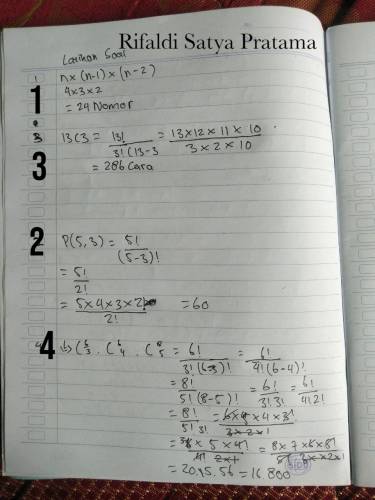 Rifaldi Satya Pratama
Latihan Soal
1
n × (n-1) × (n-2)
4 × 3 × 2
= 24 Nomor
3
13C3 = 13! / 3!(13-3 = 13 × 12 × 11 × 10 / 3 × 2 × 10
= 286 Cara
2
P(5,3) = 5! / (5-3)!
= 5! / 2!
= 5 × 4 × 3 × 2! / 2! = 60
4
= 6! / 3!(6-3)! = 6! / 4!(6-4)!
= 8! / 5!(8-5)! = 6! / 3!3! = 6! / 4!2!
= 8! / 5!3!
= 20.15.56 = 16.800